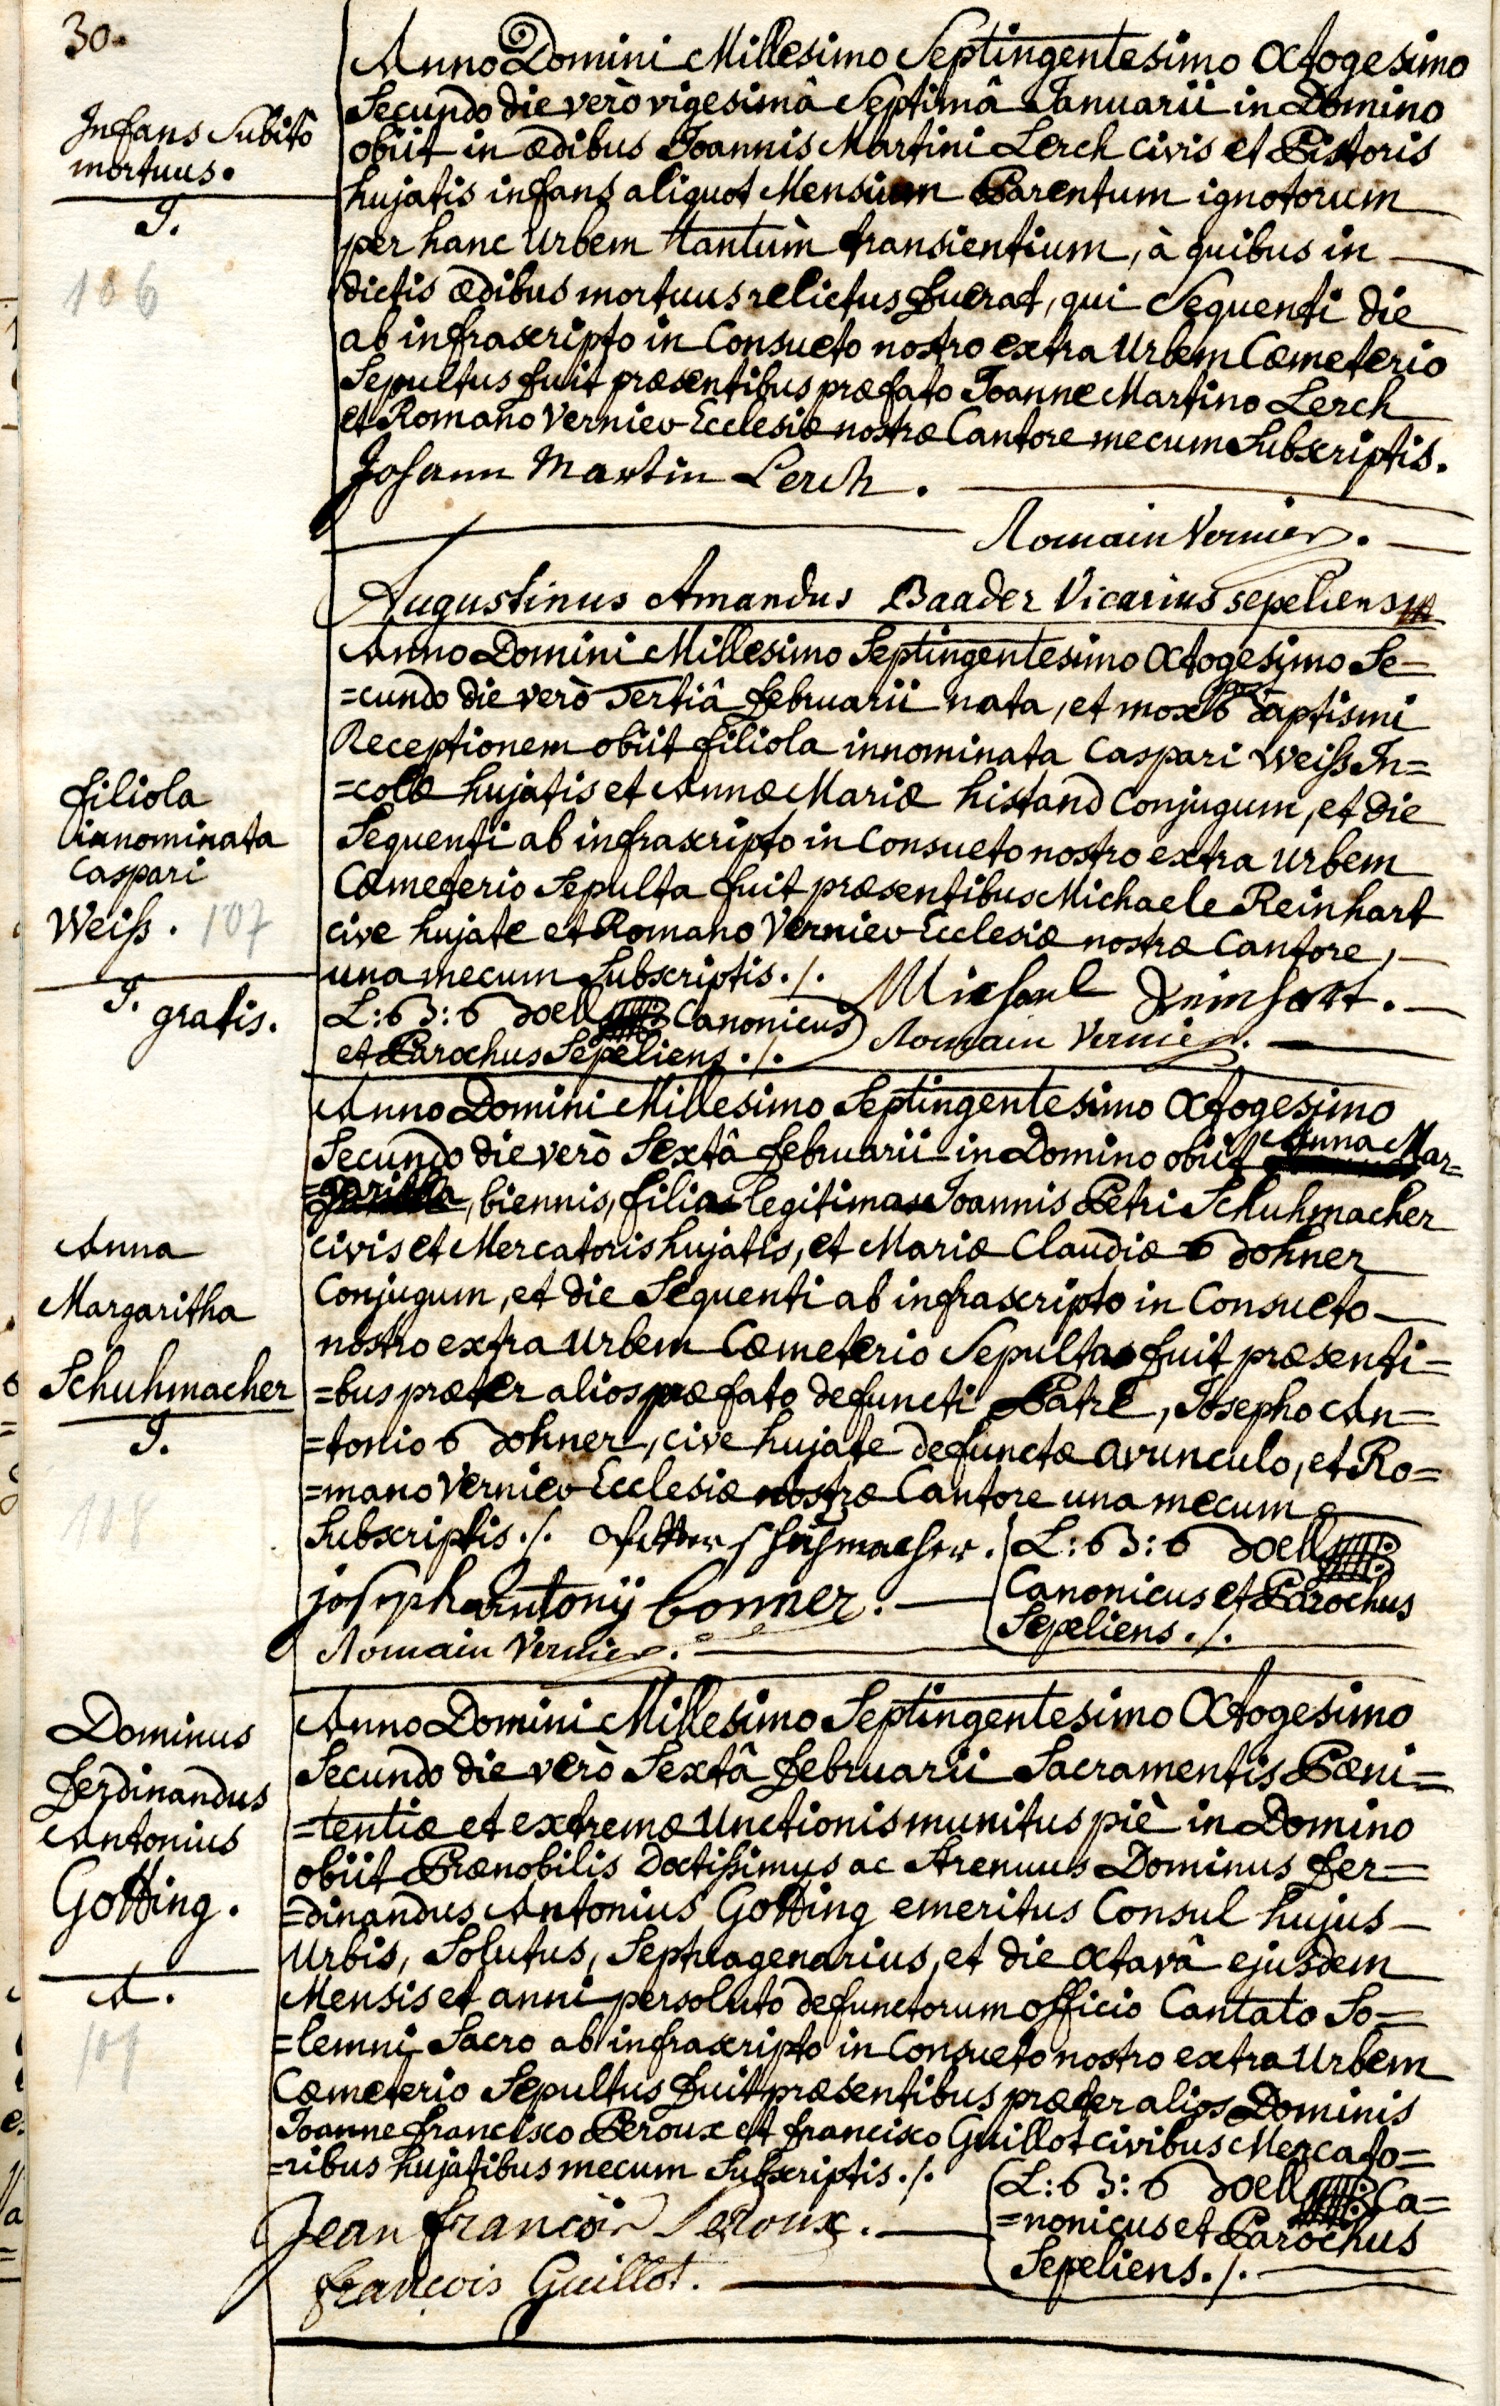 30.
Infans Subitò
mortuus.
I.
106
Anno Domini Millesimo Septingentesimo Octogesimo
Secundo die verò vigesimâ Septimâ Januarii in Domino
obiit in ædibus Joannis Martini Lerch civis et Pistoris
hujatis infans aliquot Mensium Parentum ignotorum
per hanc Urbem tantùm transientium, à quibus in
dictis ædibus mortuus relictus fuerat, qui Sequenti die
ab infrascripto in Consueto nostro extra Urbem Cœmeterio
Sepultus fuit præsentibus præfato Joanne Martino Lerch
et Romano Vernier Ecclesiæ nostræ Cantore mecum Subscriptis.
Johann Martin Lerch.
Romain Vernier.
Augustinus Amandus Baader Vicarius sepeliens
filiola
innominata
Caspari
Weiß. 107
I. gratis.
Anno Domini Millesimo Septingentesimo Octogesimo Se=
=cundo die verò Tertiâ februarii nata, et mox ob Baptismi
Receptionem obiit filiola innominata Caspari Weiß In=
=colæ hujatis et Annæ Mariæ histand Conjugum, et die
Sequenti ab infrascripto in Consueto nostro extra Urbem
Cœmeterio Sepulta fuit præsentibus Michaele Reinhart
cive hujate et Romano Vernier Ecclesiæ nostræ Cantore,
una mecum Subscriptis ./.
Michael Reinhart.
L: B: Boell Canonicus
et Parochus Sepeliens ./.
Romain Vernier.
Anna
Margaritha
Schuhmacher
I.
108
Anno Domini Millesimo Septingentesimo Octogesimo
Secundo die verò Sextâ februarii in Domino obiit Anna Mar=
=garitha, biennis, filia legitima Joannis Petri Schuhmacher
civis et Mercatoris hujatis, et Mariæ Claudiæ Bohner
Conjugum, et die Sequenti ab infrascripto in Consueto
nostro extra Urbem Cœmeterio Sepulta fuit præsenti=
=bus præter alios præfato defuncti Patre, Josepho An=
=tonio Bohner, cive hujate defunctæ avunculo, et Ro=
=mano Vernier Ecclesiæ nostræ Cantore una mecum
Subscriptis ./. Schuhmacher.
L: B: Boell
joseph antonÿ bonner.
Canonicus et Parochus
Romain Vernier.
Sepeliens ./.
Dominus
Ferdinandus
Antonius
Gotting.
A.
109
Anno Domini Millesimo Septingentesimo Octogesimo
Secundo die verò Sextâ februarii Sacramentis Pœni=
=tentiæ et extremæ Unctionis munitus piè in Domino
obiit Prænobilis Doctißimus ac Strenuus Dominus Fer=
=dinandus Antonius Gotting emeritus Consul hujus
Urbis, Solutus, Septuagenarius, et die Octavâ ejusdem
Mensis et anni persoluto defunctorum officio Cantato So=
=lemni Sacro ab infrascripto in Consueto nostro extra Urbem
Cœmeterio Sepultus fuit præsentibus præter alios Dominis
Joanne francisco Peroux et francisco Guillot civibus Mercato=
=ribus hujatibus mecum Subscriptis ./.
L: B: Boell Ca=
Jean françois Peroux.
=nonicus et Parochus
françois Guillot.
Sepeliens ./.